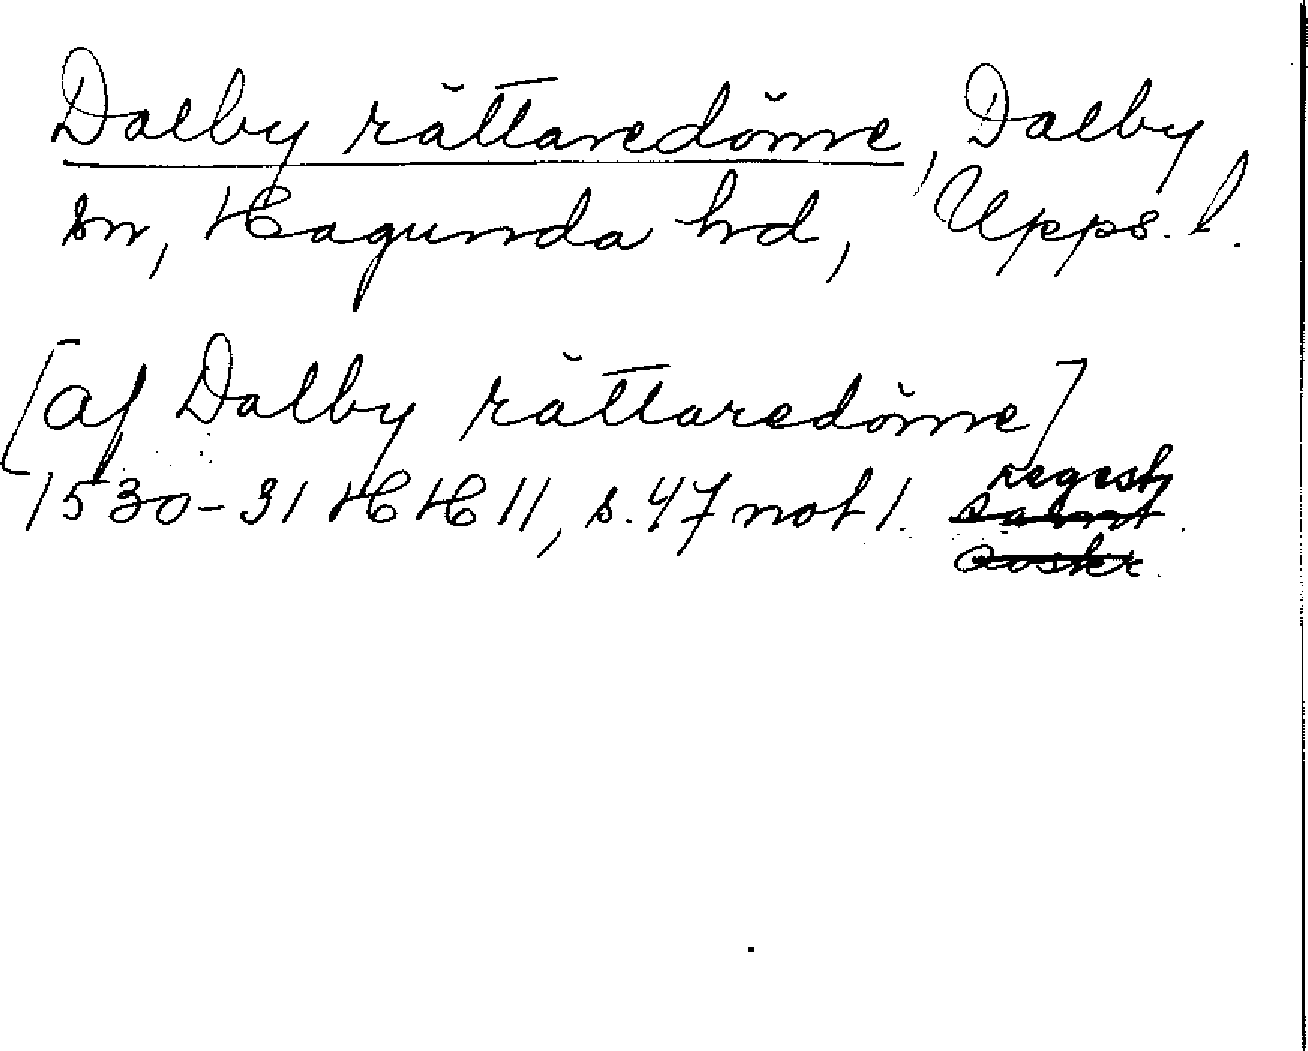 Dalby rättaredöme, Dalby
sn, Hagunda hd, Upps. l.
[af Dalby rättaredöme]
1530-31 HH 11, s. 47 not 1. regest
samt
avskr.